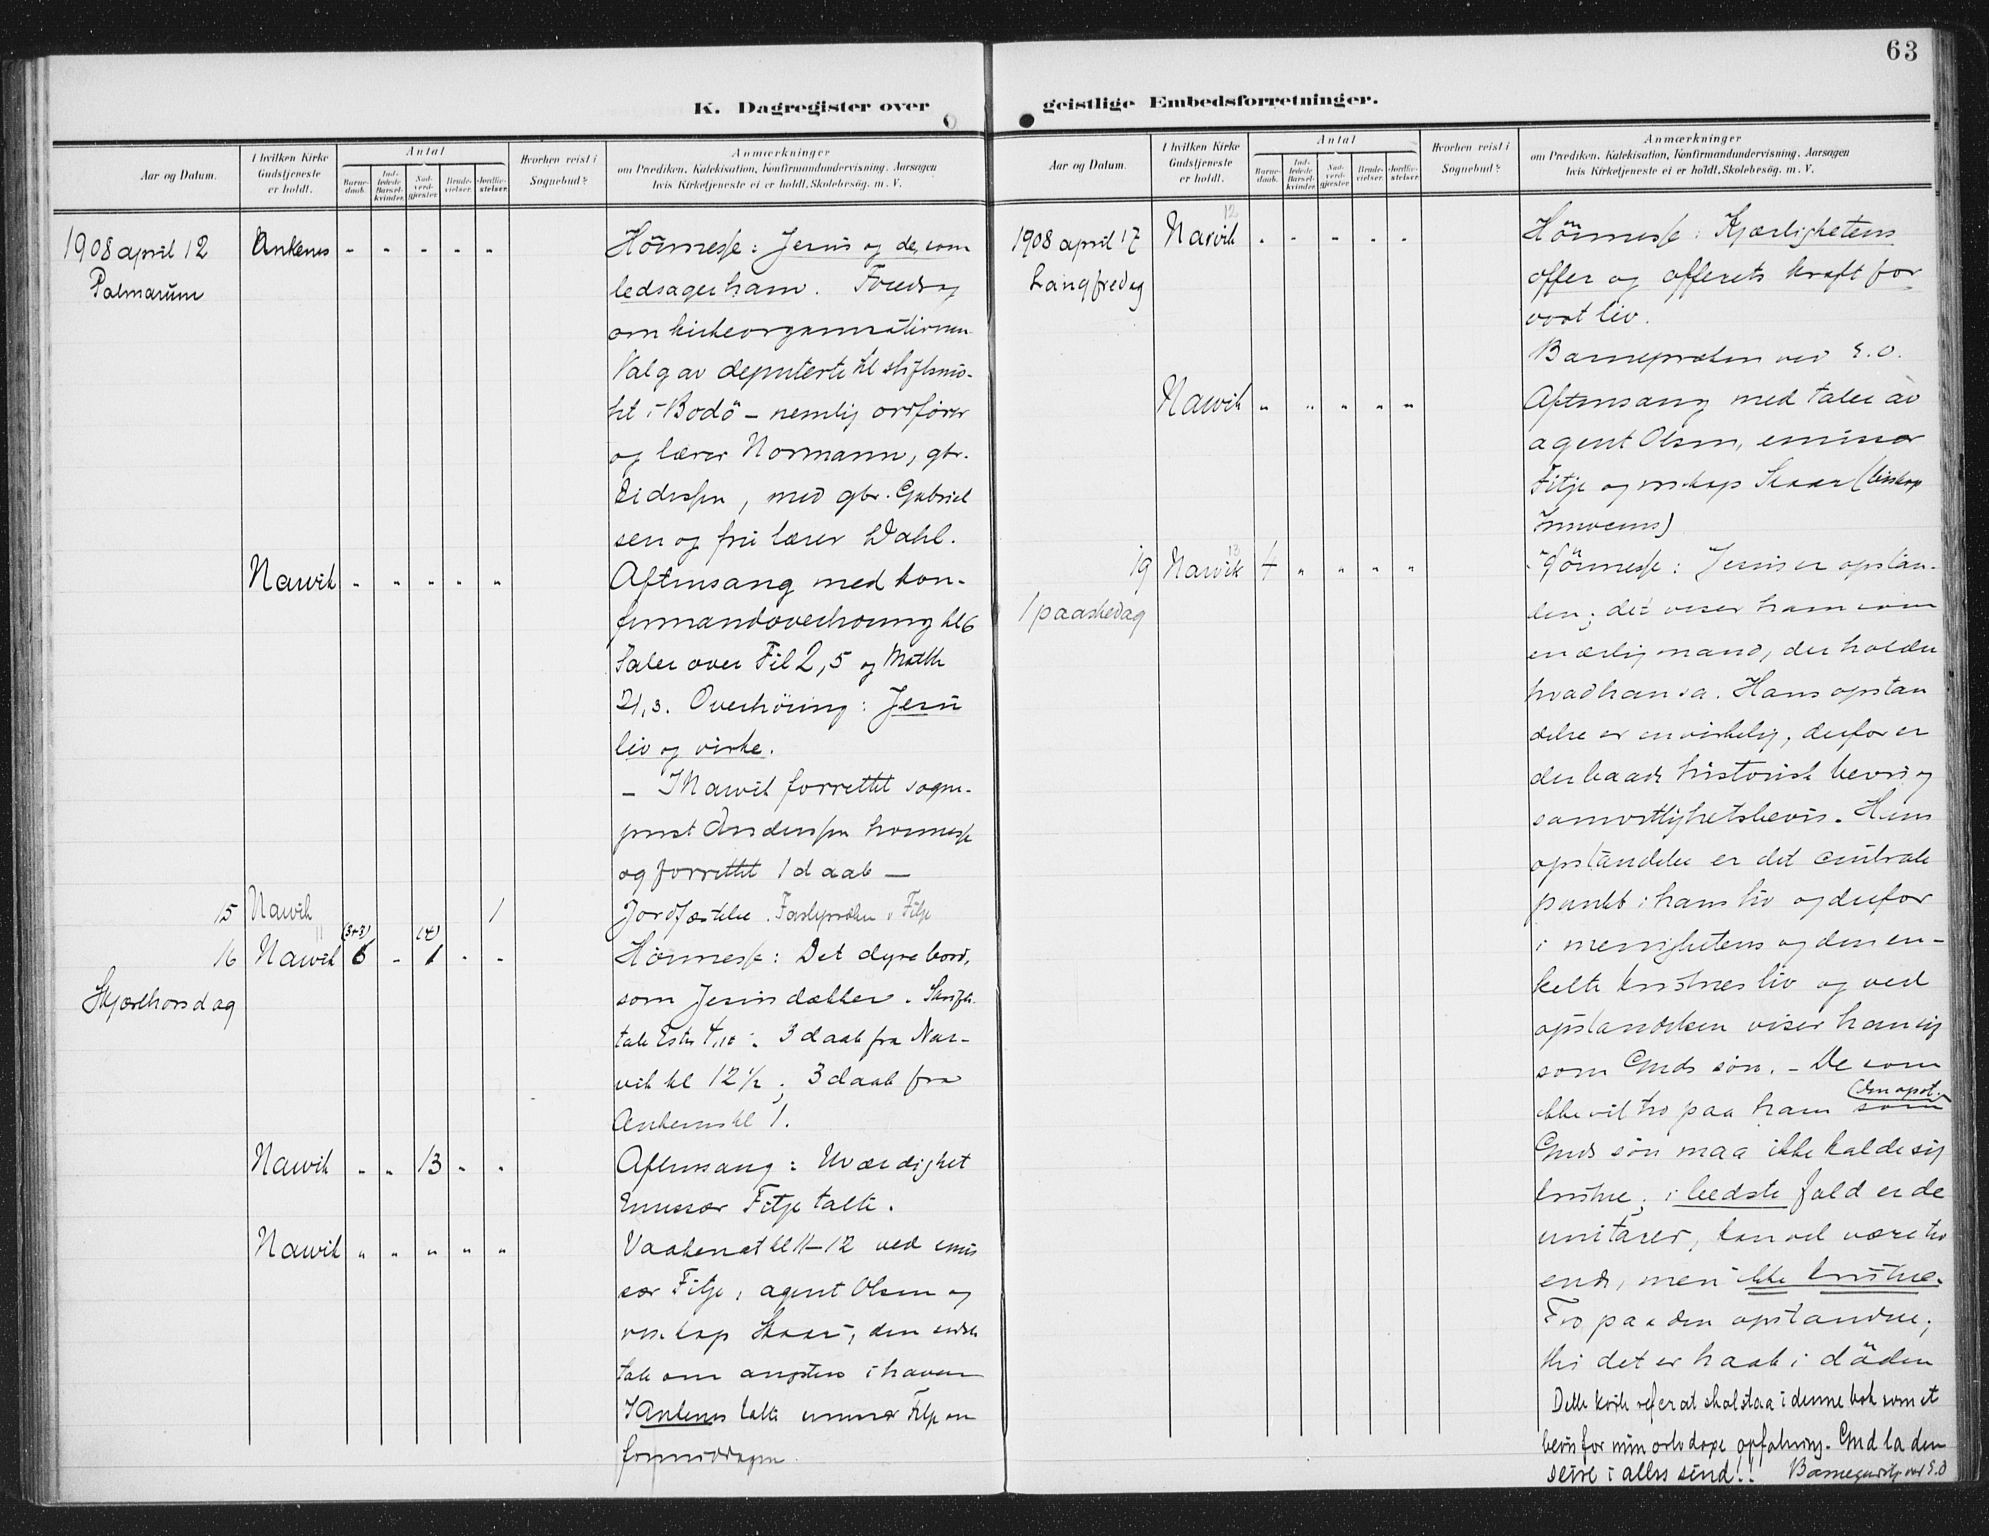 63
K. Dagregister over geistlige Embedsforretninger.
Aar og Datum.
I hvilken Kirke
Gudstjeneste
er holdt.
Antal
Barne-
daab.
Ind-
ledede
Barsel-
kvinder.
Nad-
verd-
gjæster
Brude-
vielser.
Jordfæ-
stelser.
Hvorhen reist i
Sognebud?
Anmærkninger
om Prædiken. Katekisation, Konfirmandundervisning. Aarsagen
hvis Kirketjeneste ei er holdt. Skolebesög. m. V.
1908 april 12
Palmarum
Ankenes
Höimesse: Jesus og de, som
ledsager ham. Foredrag
om kirkeorganisationen
Valg av deputerte til stiftsmö-
tet i Bodö – nemlig ordförer
og lærer Normann, gbr.
med gbr. Gabriel
sen og frii lærer Dahl.
Narvik
Aftensang med kon-
firmandoverhöring kl 6
Taler over Fil 2,5 og Matth
21,3. Overhöring: Jesu
liv og virke.
– I Narvik forrettet sogne-
prest Anderssen höimesse
og forrettet 1 daab –
15 Narvik 1
Jordfæstelse. Fastepræken v Fitje
16 Narvik 11 (3+3) 6 (4) 1
Skjærthorsdag
Höimesse: Det dyre bord,
som Jesus dækker. Skrifte-
tale Ester 4,10. 3 daab fra Nar-
vik kl 12½, 3 daab fra
Ankenes kl 1.
Narvik 13
Aftensang: Uværdighet
Emissær Fitje talte.
Narvik
Vaakenat kl 11–12 ved emis
sær Fitje, agent Olsen og
Skaar, den sidste
tale om angsten i haven
I Ankenes talte emissær Fitje om
formiddagen.
Aar og Datum.
I hvilken Kirke
Gudstjeneste
er holdt.
Antal
Barne-
daab.
Ind-
ledede
Barsel-
kvinder.
Nad-
verd-
gjæster
Brude-
vielser.
Jordfæ-
stelser.
Hvorhen reist i
Sognebud?
Anmærkninger
om Prædiken. Katekisation, Konfirmandundervisning. Aarsagen
hvis Kirketjeneste ei er holdt. Skolebesög. m. V.
1908 april 17
Langfredag
12
Narvik
Höimesse: Kjærlighetens
offer og offerets kraft for
vort liv.
Barnepræken ved E.O.
Narvik
Aftensang med taler av
agent Olsen, emissær
Fitje og Skaar (biskop
19 Narvik 13 4
1 paaskedag
Höimesse: Jesus er opstan-
den; det viser ham som
en ærlig mand, der holder
hvad han sa. Hans opstan
delse er en virkelig, derfor er
der baade historisk bevis og
samvittighetsbevis. Hans
opstandelse er det centrale
punkt i hans liv og derfor
i menighetens og den en-
kelte kristnes liv og ved
opstandelsen viser han sig
som Guds sön. – De som
ikke vil tro paa ham (den opst. som
Guds sön maa ikke kalde sig
kristne; i bedste fald er de
unitarer, kan vel være tro
ende, men ikke kristne.
Tro paa den opstandne;
thi det er haab i döden
Dette korte referat skal staa i denne bok som et
bevis for min ortodoxe opfatning. Gud la den
seire i alles sind!! Barnegudstj ved E.O